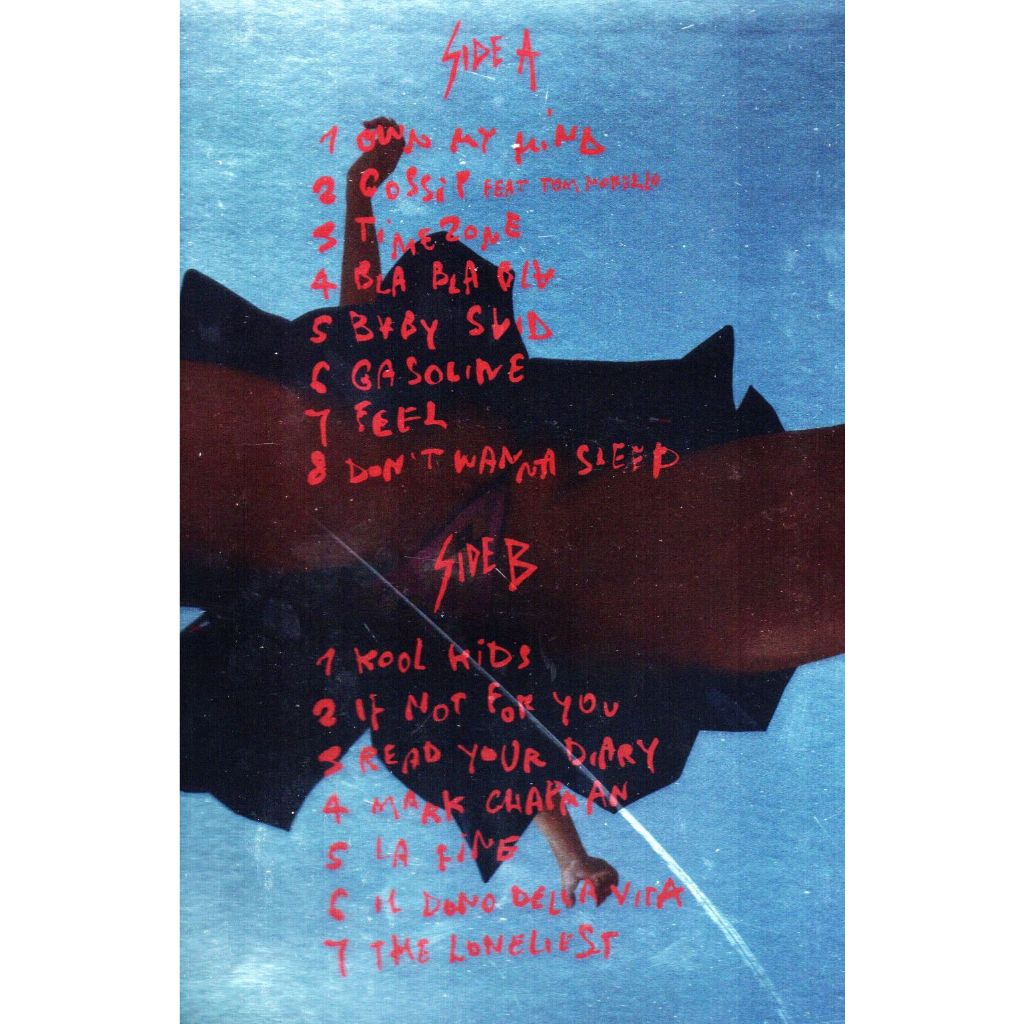 SIDE A
1 OWN MY MIND
2 GOSSIP FEAT TOM MORELLO
3 TIMEZONE
4 BLA BLA BLA
5 BABY SAID
6 GASOLINE
7 FEEL
8 DON'T WANNA SLEEP
SIDE B
1 KOOL KIDS
2 IF NOT FOR YOU
3 READ YOUR DIARY
4 MARK CHAPMAN
5 LA FINE
6 IL DONO DELLA VITA
7 THE LONELIEST